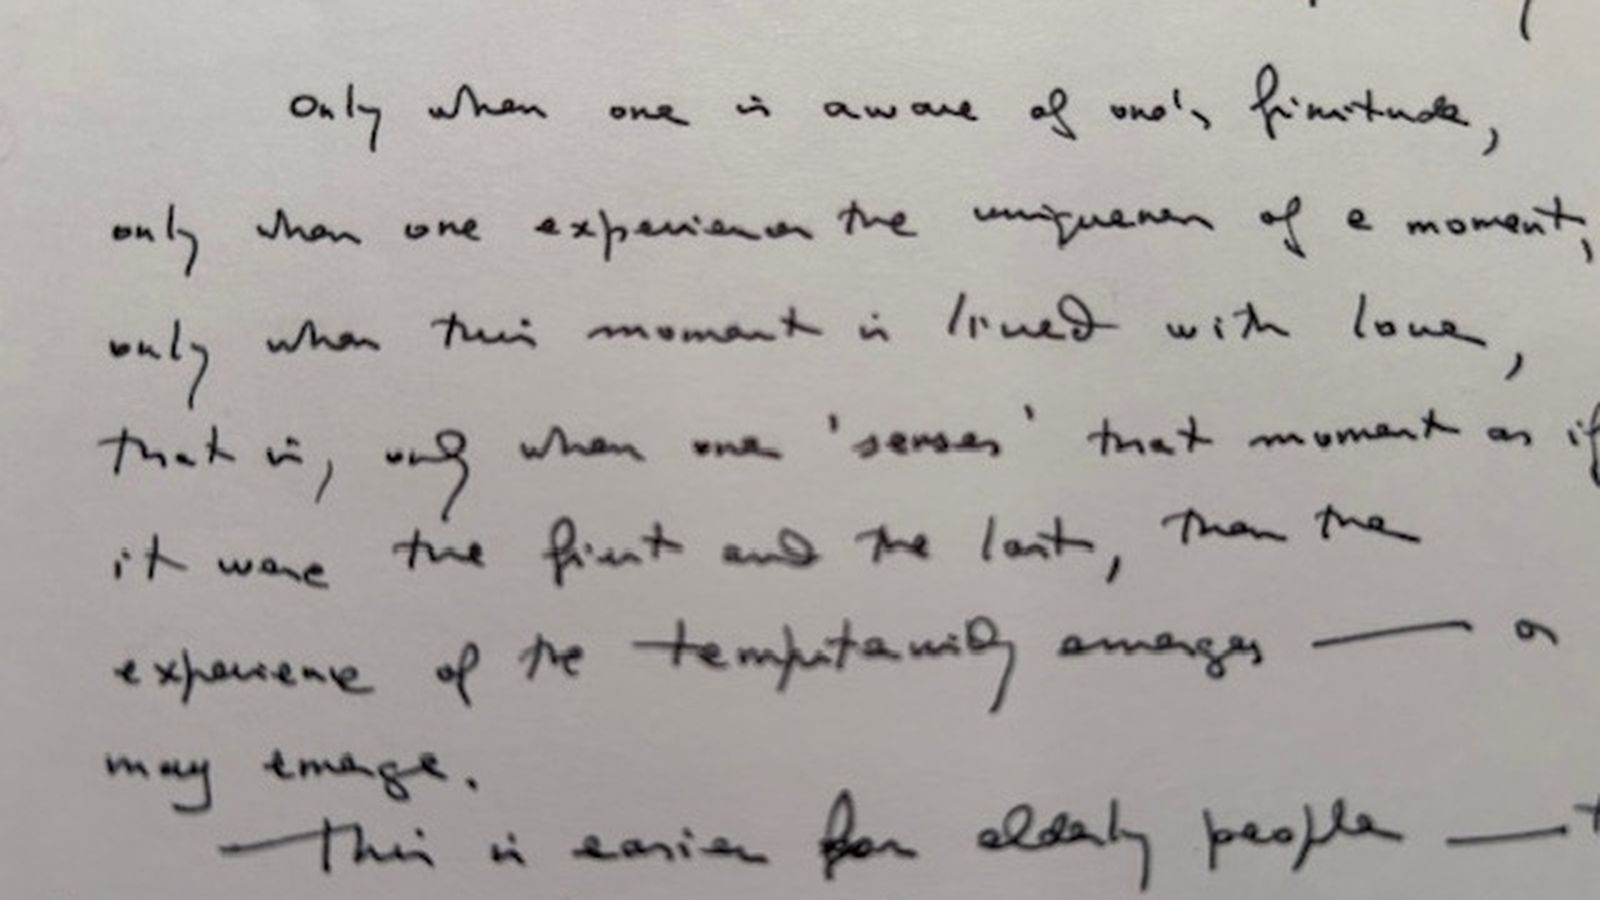 Only when one is aware of one's finitude,
only when one experiences the uniqueness of a moment,
only when this moment is lived with love,
that is, only when one 'senses' that moment as if
it were the first and the last, then the
experience of the emerges — or
may emerge.
— This is easier for elderly people —